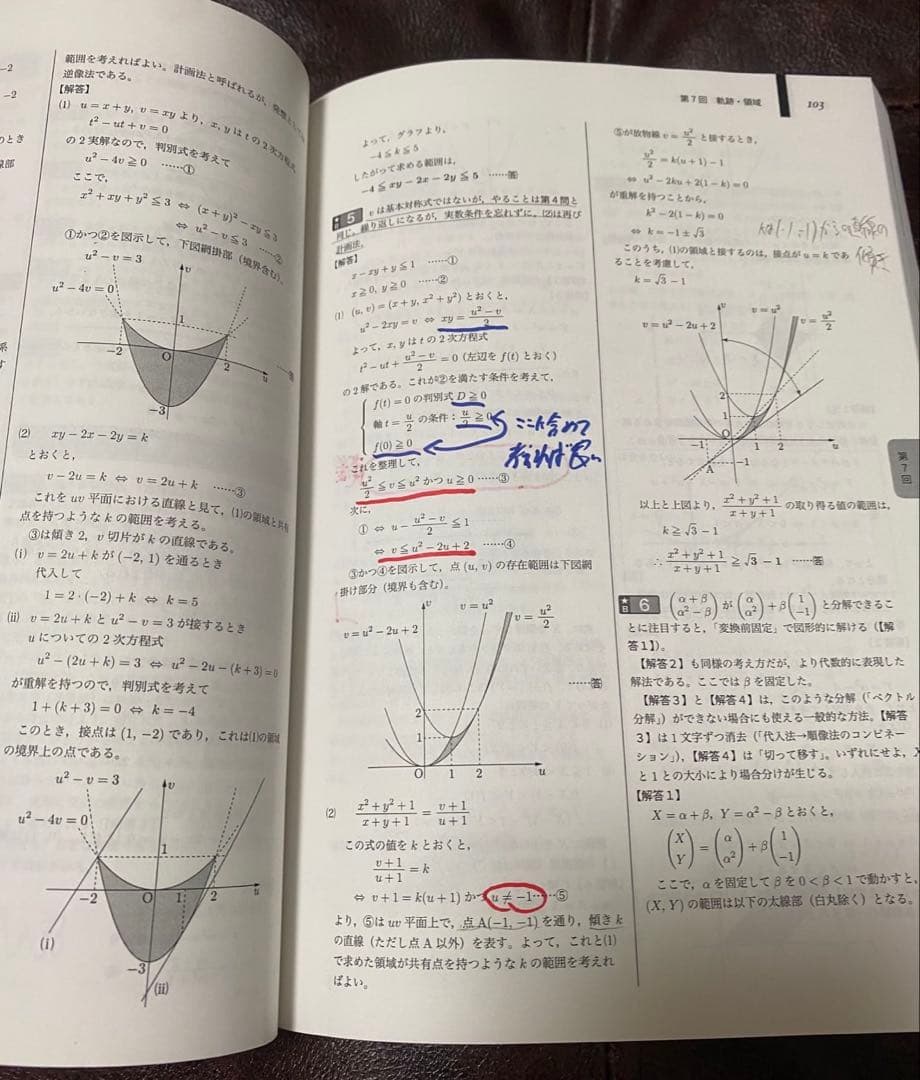 範囲を考えればよい。計画法と呼ばれるが、発想としては
逆像法である。
【解答】
(1) u=x+y, v=xy より, x, y は t の2次方程式
t²-ut+v=0
の2実解なので、判別式を考えて
u²-4v≧0 ……①
ここで,
x²+xy+y²≦3 ⇔ (x+y)²-xy≦3
⇔ u²-v≦3 ……②
①かつ②を図示して, 下図網掛部 (境界含む)。
u²-v=3
u²-4v=0
v
1
-2
O
2
u
-3
(2) xy-2x-2y=k
とおくと,
v-2u=k ⇔ v=2u+k ……③
これを uv 平面における直線と見て, (1)の領域と共有
点を持つような k の範囲を考える。
③は傾き2, v切片が k の直線である。
(i) v=2u+k が (-2, 1) を通るとき
代入して
1=2·(-2)+k ⇔ k=5
(ii) v=2u+k と u²-v=3 が接するとき
u についての2次方程式
u²-(2u+k)=3 ⇔ u²-2u-(k+3)=0
が重解を持つので, 判別式を考えて
1+(k+3)=0 ⇔ k=-4
このとき, 接点は (1, -2) であり, これは(1)の領域
の境界上の点である。
u²-v=3
u²-4v=0
v
1
-2
O
1
2
u
-3
(i)
(ii)
第7回 軌跡・領域
103
よって, グラフより,
-4≦k≦5
したがって求める範囲は,
-4≦xy-2x-2y≦5 ……答
5 v は基本対称式ではないが, やることは第4問と
同じ。繰り返しになるが, 実数条件を忘れずに。(2)は再び
計画法。
【解答】
x-xy+y≦1 ……①
x≧0, y≧0 ……②
(1) (u, v)=(x+y, x²+y²) とおくと,
u²-2xy=v ⇔ xy=(u²-v)/2
よって, x, y は t の2次方程式
t²-ut+(u²-v)/2=0 (左辺を f(t) とおく)
の2解である。これが②を満たす条件を考えて,
f(t)=0 の判別式 D≧0
軸 t=u/2 の条件：u/2≧0
f(0)≧0
ここに含めて
これを整理して,
u²/2≦v≦u² かつ u≧0 ……③
次に,
① ⇔ u-(u²-v)/2≦1
⇔ v≦u²-2u+2 ……④
③かつ④を図示して, 点 (u, v) の存在範囲は下図網
掛け部分 (境界も含む)。
v
v=u²
v=u²/2
v=u²-2u+2
……答
2
1
O
1
2
u
(2) (x²+y²+1)/(x+y+1)=(v+1)/(u+1)
この式の値を k とおくと,
(v+1)/(u+1)=k
⇔ v+1=k(u+1) かつ u≠-1 ……⑤
より, ⑤は uv 平面上で, 点 A(-1, -1) を通り, 傾き k
の直線 (ただし点 A 以外) を表す。よって, これと(1)
で求めた領域が共有点を持つような k の範囲を考えれ
ばよい。
⑤が放物線 v=u²/2 と接するとき,
u²/2=k(u+1)-1
⇔ u²-2ku+2(1-k)=0
が重解を持つことから,
k²-2(1-k)=0
⇔ k=-1±√3
このうち, (1)の領域と接するのは, 接点が u=k であ
ることを考慮して,
k=√3-1
v
v=u²
v=u²/2
v=u²-2u+2
2
1
-1
O
1
2
u
A
-1
第7回
以上と上図より, (x²+y²+1)/(x+y+1) の取り得る値の範囲は,
k≧√3-1
∴ (x²+y²+1)/(x+y+1)≧√3-1 ……答
6 (α+β α²-β) が (α α²)+β(1 -1) と分解できるこ
とに注目すると,「変換前固定」で図形的に解ける (【解
答1】)。
【解答2】も同様の考え方だが, より代数的に表現した
解法である。ここでは β を固定した。
【解答3】と【解答4】は, このような分解 (「ベクトル
分解」) ができない場合にも使える一般的な方法。【解答
3】は1文字ずつ消去 (「代入法→順像法のコンビネー
ション」),【解答4】は「切って移す」。いずれにせよ, X
と1との大小により場合分けが生じる。
【解答1】
X=α+β, Y=α²-β とおくと,
(X Y)=(α α²)+β(1 -1)
ここで, α を固定して β を 0<β<1 で動かすと,
(X, Y) の範囲は以下の太線部 (白丸除く) となる。